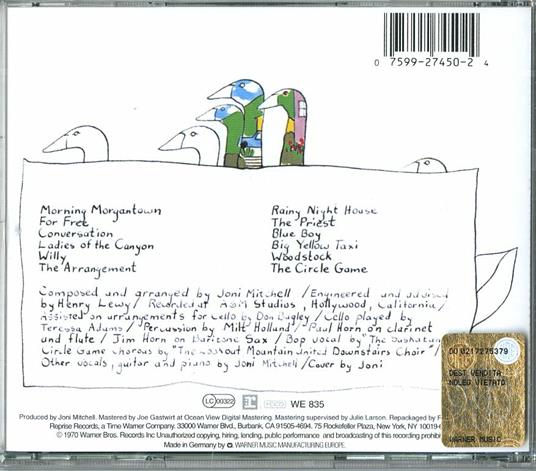 0 7599-27450-2 4
Morning Morgantown
For Free
Conversation
Ladies of the Canyon
Willy
The Arrangement
Rainy Night House
The Priest
Blue Boy
Big Yellow Taxi
Woodstock
The Circle Game
Composed and arranged by Joni Mitchell / Engineered and advised
by Henry Lewy / Recorded at A&M Studios, Hollywood, California /
Assisted on arrangements for Cello by Don Bagley / Cello played by
Teressa Adams / Percussion by Milt Holland / Paul Horn on clarinet
and flute / Jim Horn on Baritone Sax / Bop vocal by "The Saskatun
Circle Game chorous by "The Lookout Mountain United Downstairs Choir" /
Other vocals, guitar and piano by Joni Mitchell / Cover by Joni
LC 00322 WE 835
Produced by Joni Mitchell. Mastered by Joe Gastwirt at Ocean View Digital Mastering. Mastering supervised by Julie Larson. Repackaged by
Reprise Records, a Time Warner Company. 33000 Warner Blvd., Burbank, CA 91505-4694. 75 Rockefeller Plaza, New York, NY 10019-
© 1970 Warner Bros. Records Inc Unauthorized copying, hiring, lending, public performance and broadcasting of this recording
Made in Germany by WARNER MUSIC MANUFACTURING EUROPE.
00 0217275379
DEST. VENDITA
NOLEG. VIETATO
WARNER MUSIC